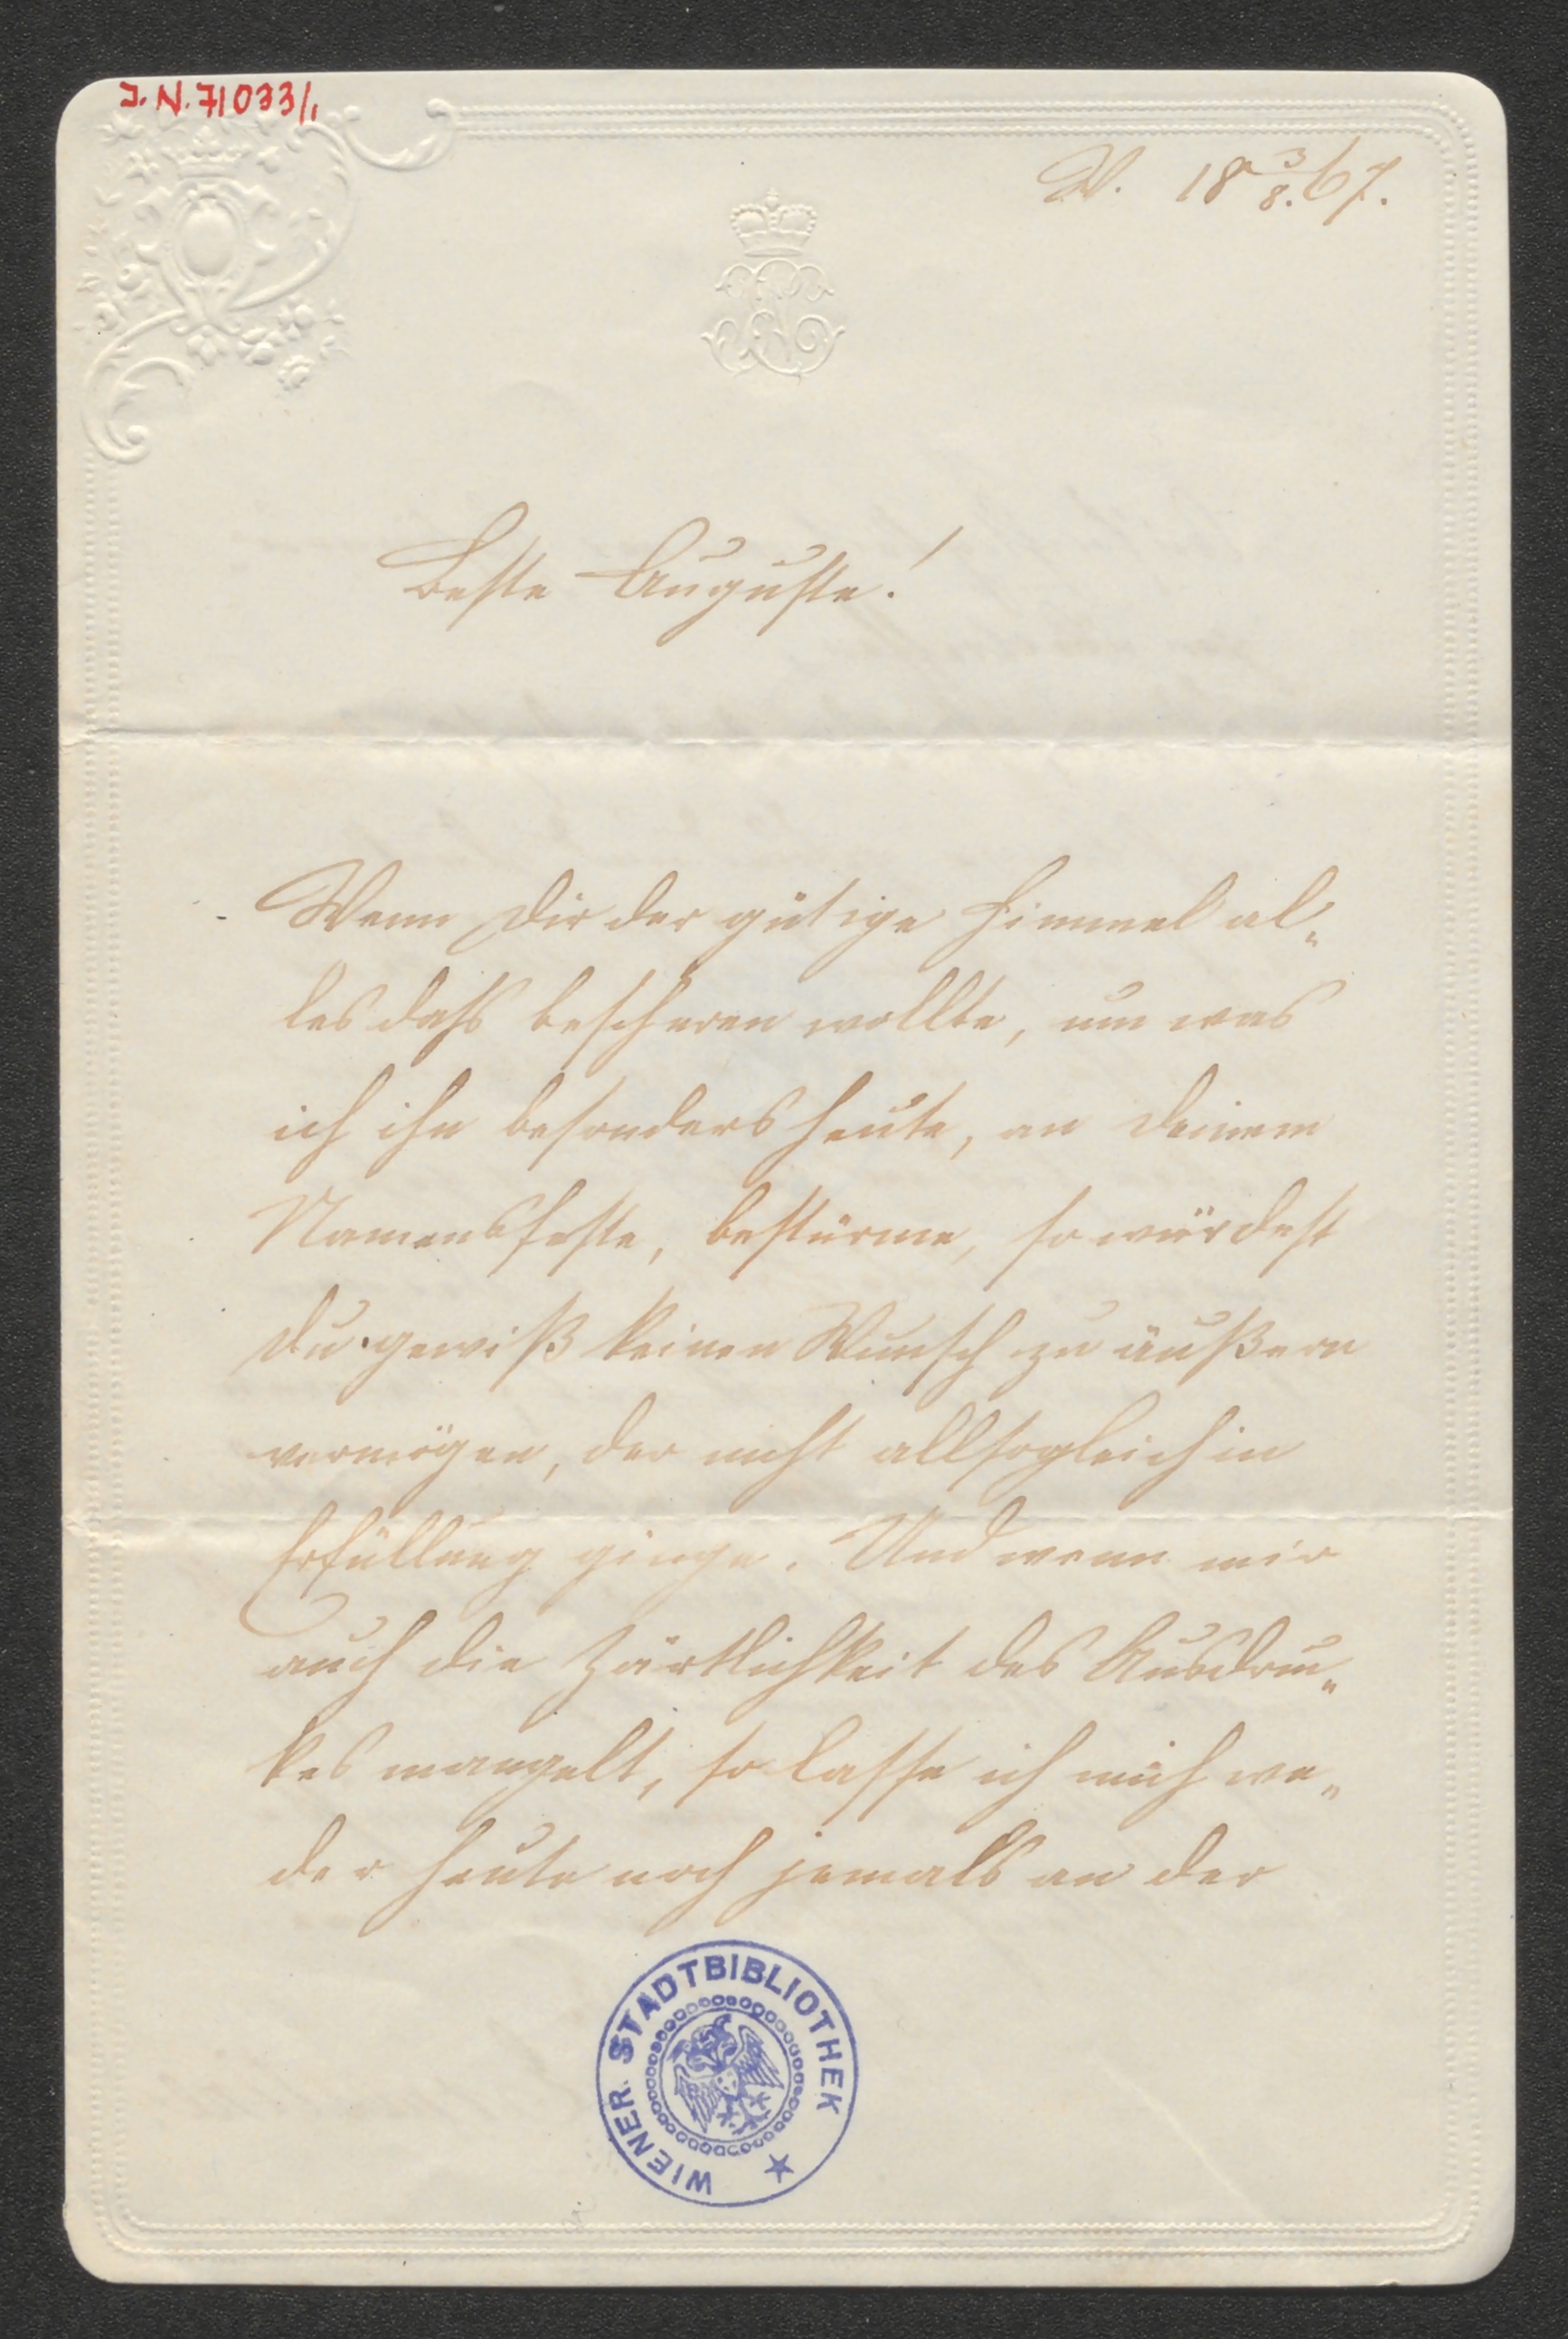 J. N. 71033/1
W. 18 3/8. 67.
Beste Auguste!
Wenn Dir der gütige Himmel al„
les daß bescheren wollte, um was
ich ihn besonders heute, an Deinem
Namensfeste, bestürme, so würdest
Du gewiß keinen Wunsch zu äußern
vermögen, der nicht allsogleich in
Erfüllung ginge. Und wenn mir
auch die Zärtlichkeit des Ausdru„
kes mangelt, so lasse ich mich we„
der heute noch jemals an der
WIENER STADTBIBLIOTHEK